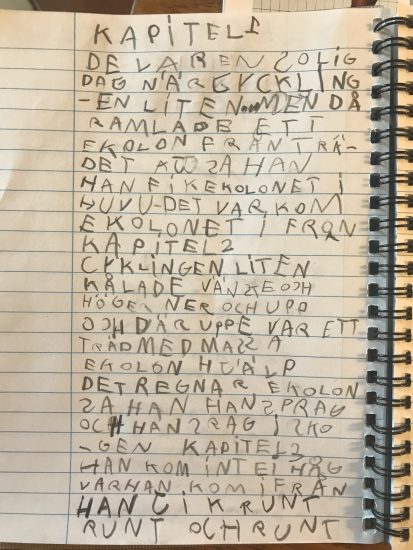 KAPITEL 1
DE VAR EN SOLIG
DAG NÄR CYCKLING
-EN LITEN... MEN DÅ
RAMLADE ETT
EKOLON FRÅN TRÄ-
DET SA HAN
HAN FIK EKOLONET I
HUVU-DET VAR KOM
EKOLONET I FRÅN
KAPITEL 2
CYKLINGEN LITEN
KÅLADE VÄNSE OCH
HÖGER NER OCH UPP
OCH DÄR UPPE VAR ETT
TRÄD MED MASSA
EKOLON HJÄLP
DET REGNAR EKOLON
SA HAN HAN SPRAG
OCH HAN SRAG I SKO
-GEN KAPITEL 3
HAN KOM INTE I HÅG
VAR HAN KOM IFRÅN
HAN JIK RUNT
RUNT OCH RUNT